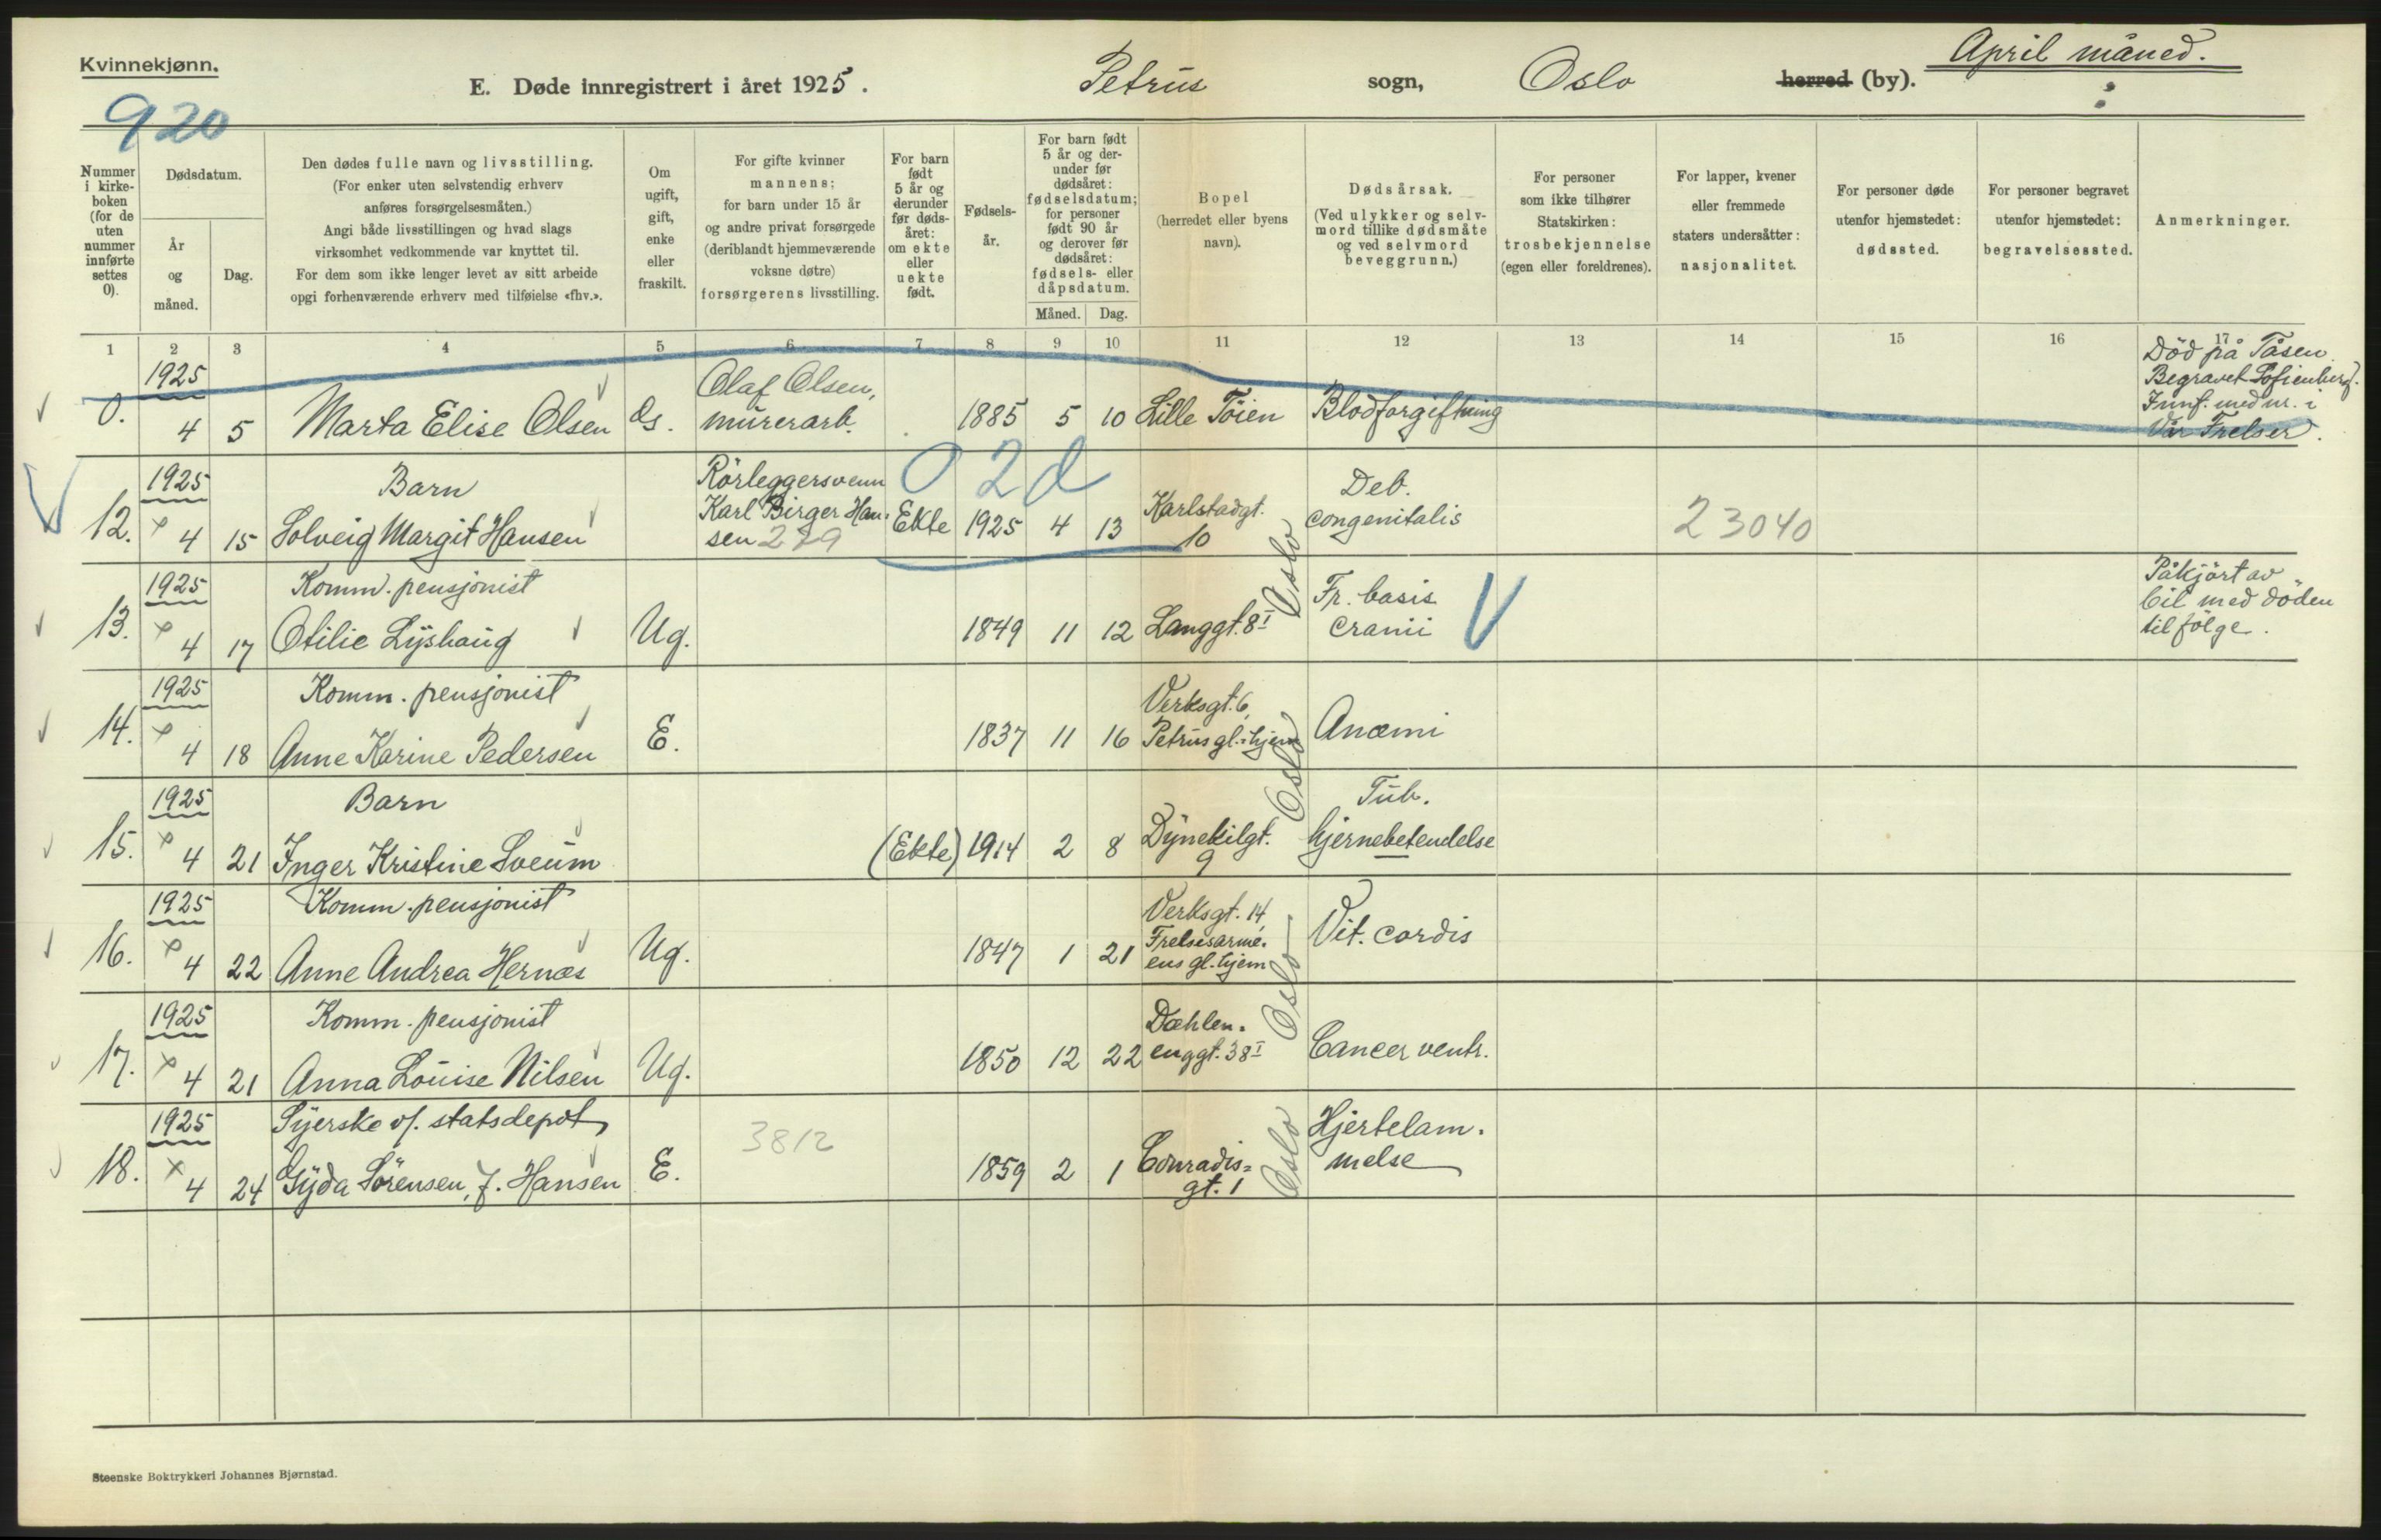 Kvinnekjønn.
E. Døde innregistrert i året 1925. Petrus sogn, Oslo herred (by). April måned.
920
Nummer i kirke-boken (for de uten nummer innførte settes 0).
Dødsdatum.
År og måned.
Dag.
Den dødes fulle navn og livsstilling.
(For enker uten selvstendig erhverv
anføres forsørgelsesmåten.)
Angi både livsstillingen og hvad slags
virksomhet vedkommende var knyttet til.
For dem som ikke lenger levet av sitt arbeide
opgi forhenværende erhverv med tilføielse «fhv.».
Om
ugift,
gift,
enke
eller
fraskilt.
For gifte kvinner
mannens;
for barn under 15 år
og andre privat forsørgede
(deriblandt hjemmeværende
voksne døtre)
forsørgerens livsstilling.
For barn
født
5 år og
derunder
før døds-
året:
om ekte
eller
uekte
født.
Fødsels-
år.
For barn født
5 år og der-
under før
dødsåret:
fødselsdatum;
for personer
født 90 år
og derover før
dødsåret:
fødsels- eller
dåpsdatum.
Måned. Dag.
Bopel
(herredet eller byens
navn).
Dødsårsak.
(Ved ulykker og selv-
mord tillike dødsmåte
og ved selvmord
beveggrunn.)
For personer
som ikke tilhører
Statskirken:
trosbekjennelse
(egen eller foreldrenes).
For lapper, kvener
eller fremmede
staters undersåtter:
nasjonalitet.
For personer døde
utenfor hjemstedet:
dødssted.
For personer begravet
utenfor hjemstedet:
begravelsessted.
Anmerkninger.
1 2 3 4 5 6 7 8 9 10 11 12 13 14 15 16 17
1925
0. 4 5 Marta Elise Olsen
Olaf Olsen,
murerarb.
1885 5 10 Lille Töien Blodforgiftning
Död på Tåsen.
Begravet Sofienberg.
Innf. med nr. i
Vår Frelser.
02d
1925 Barn
12. 4 15 Solveig Margit Hansen
Rörleggersvenn
Karl Birger Han-
sen 229
Ekte 1925 4 13
Karlstadgt.
10
Deb.
congenitalis
23040
Oslo
1925 Komm. pensjonist
13. 4 17 Otilie Lyshaug Ug. 1849 11 12 Langgt. 8 I
Fr. basis
cranii
Påkjört av
bil med döden
til fölge.
1925 Komm. pensjonist
14. 4 18 Anne Karine Pedersen E. 1837 11 16
Verksgt. 6,
Petrus gl.-hjem
Anæmi
Oslo
1925 Barn
15. 4 21 Inger Kristine Sveum (Ekte) 1914 2 8
Dynekilgt.
9
Tub.
hjernebetendelse
1925 Komm. pensjonist
16. 4 22 Anne Andrea Hernæs Ug. 1847 1 21
Verksgt. 14,
Frelsesarmé-
ens gl.hjem
Vit. cordis
Oslo
1925 Komm. pensjonist
17. 4 21 Anna Louise Nilsen Ug. 1850 12 22
Dæhlen-
enggt. 38 I
Cancer ventr.
1925 Syerske v/. statsdepot
18. 4 24 Gyda Sörensen, f. Hansen E. 3812 1859 2 1
Conradis=
gt. 1
Oslo
Hjertelam-
melse
Steenske Boktrykkeri Johannes Bjørnstad.